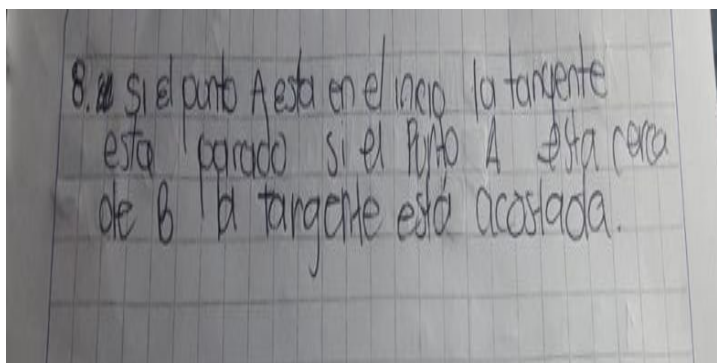 8. Si el punto A esta en el inicio la tangente
esta parado si el Punto A esta cerca
de B la tangente está acostada.